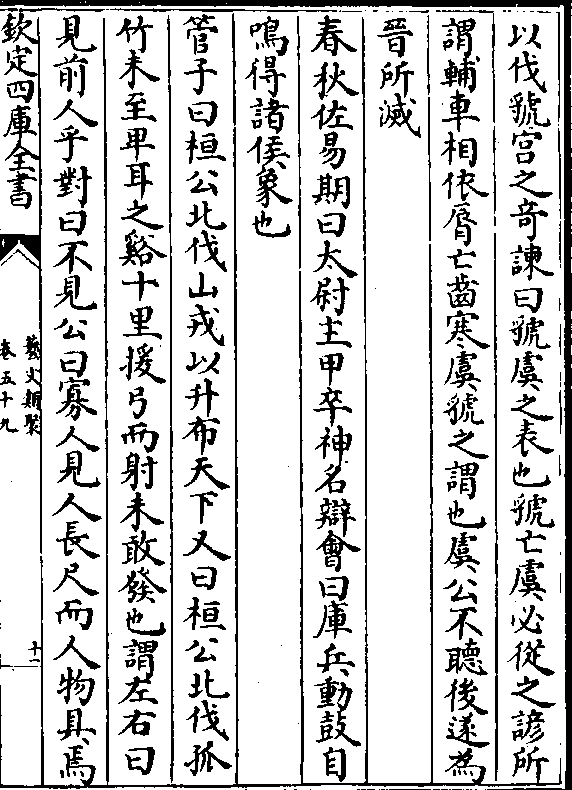 以伐虢宫之奇諫曰虢虞之表也虢亡虞必從之諺所
謂輔車相依脣亡齒寒虞虢之謂也虞公不聽後遂為
晉所滅
春秋佐易期曰太尉主甲卒神名辯會曰庫兵動鼓自
鳴得諸侯象也
管子曰桓公北伐山戎以升布天下又曰桓公北伐孤
竹未至卑耳之谿十里援弓而射未敢發也謂左右曰
見前人乎對曰不見公曰寡人見人長尺而人物具焉
欽定四庫全書
藝文類聚
卷五十九
十一